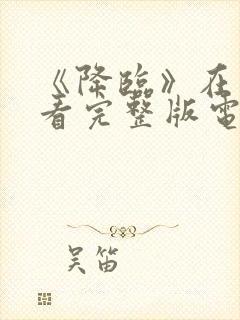 《降临》在
看完整版電
吴笛